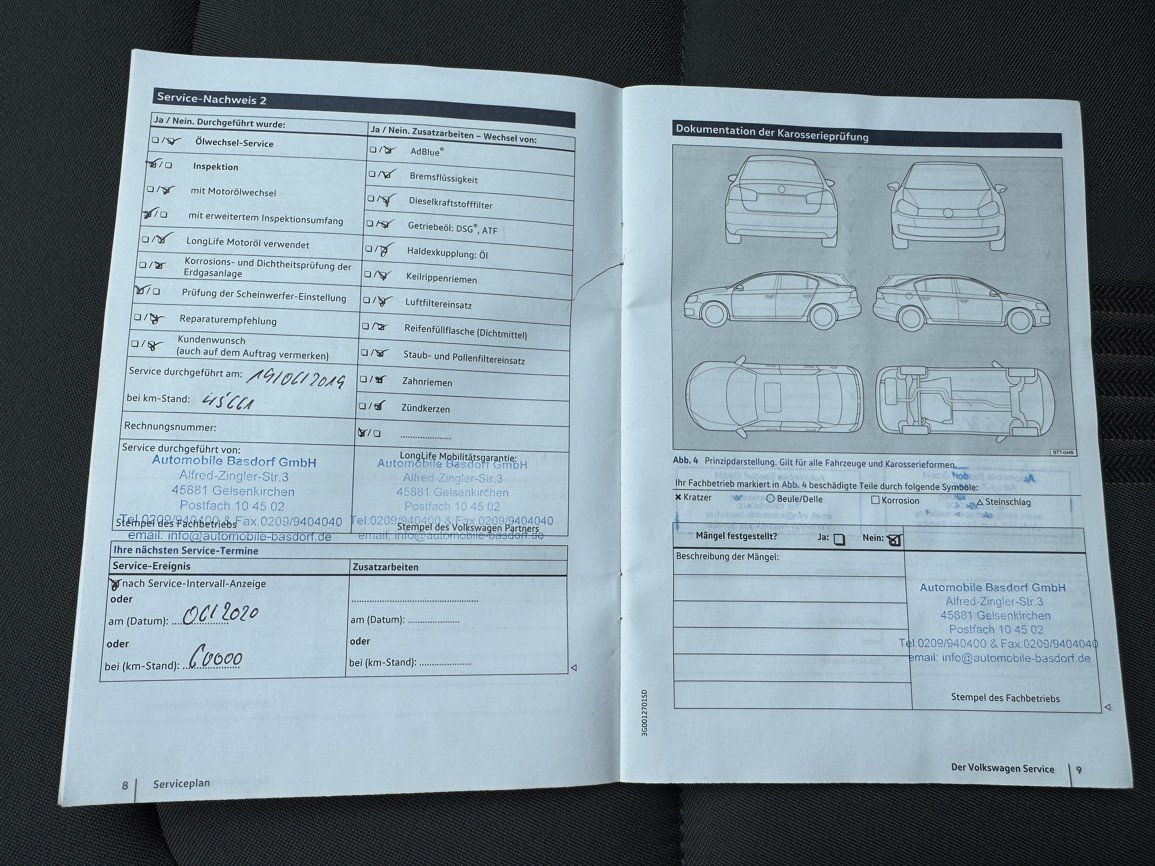 Service-Nachweis 2
Ja / Nein. Durchgeführt wurde:
Ölwechsel-Service
Inspektion
mit Motorölwechsel
mit erweitertem Inspektionsumfang
LongLife Motoröl verwendet
Korrosions- und Dichtheitsprüfung der
Erdgasanlage
Prüfung der Scheinwerfer-Einstellung
Reparaturempfehlung
Kundenwunsch
(auch auf dem Auftrag vermerken)
Service durchgeführt am: 19/06/2019
bei km-Stand: 45661
Rechnungsnummer:
Service durchgeführt von:
Automobile Basdorf GmbH
Alfred-Zingler-Str.3
45881 Gelsenkirchen
Postfach 10 45 02
Tel.0209/940400 & Fax.0209/9404040
email: info@automobile-basdorf.de
Stempel des Fachbetriebs
Ja / Nein. Zusatzarbeiten – Wechsel von:
AdBlue®
Bremsflüssigkeit
Dieselkraftstofffilter
Getriebeöl: DSG®, ATF
Haldexkupplung: Öl
Keilrippenriemen
Luftfiltereinsatz
Reifenfüllflasche (Dichtmittel)
Staub- und Pollenfiltereinsatz
Zahnriemen
Zündkerzen
LongLife Mobilitätsgarantie:
Automobile Basdorf GmbH
Alfred-Zingler-Str.3
45881 Gelsenkirchen
Postfach 10 45 02
Tel.0209/940400 & Fax.0209/9404040
email: info@automobile-basdorf.de
Stempel des Volkswagen Partners
Ihre nächsten Service-Termine
Service-Ereignis
nach Service-Intervall-Anzeige
oder
am (Datum): 06/2020
oder
bei (km-Stand): 60000
Zusatzarbeiten
am (Datum):
oder
bei (km-Stand):
8 Serviceplan
Dokumentation der Karosserieprüfung
BTT-0448
Abb. 4 Prinzipdarstellung. Gilt für alle Fahrzeuge und Karosserieformen.
Ihr Fachbetrieb markiert in Abb. 4 beschädigte Teile durch folgende Symbole:
Kratzer Beule/Delle Korrosion Steinschlag
Mängel festgestellt? Ja: Nein:
Beschreibung der Mängel:
Automobile Basdorf GmbH
Alfred-Zingler-Str.3
45881 Gelsenkirchen
Postfach 10 45 02
Tel.0209/940400 & Fax.0209/9404040
email: info@automobile-basdorf.de
Stempel des Fachbetriebs
3G0012701SD
Der Volkswagen Service 9